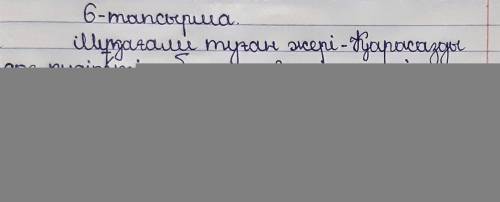 6-тапсырма.
Мұқағали туған жері-Қарасазды